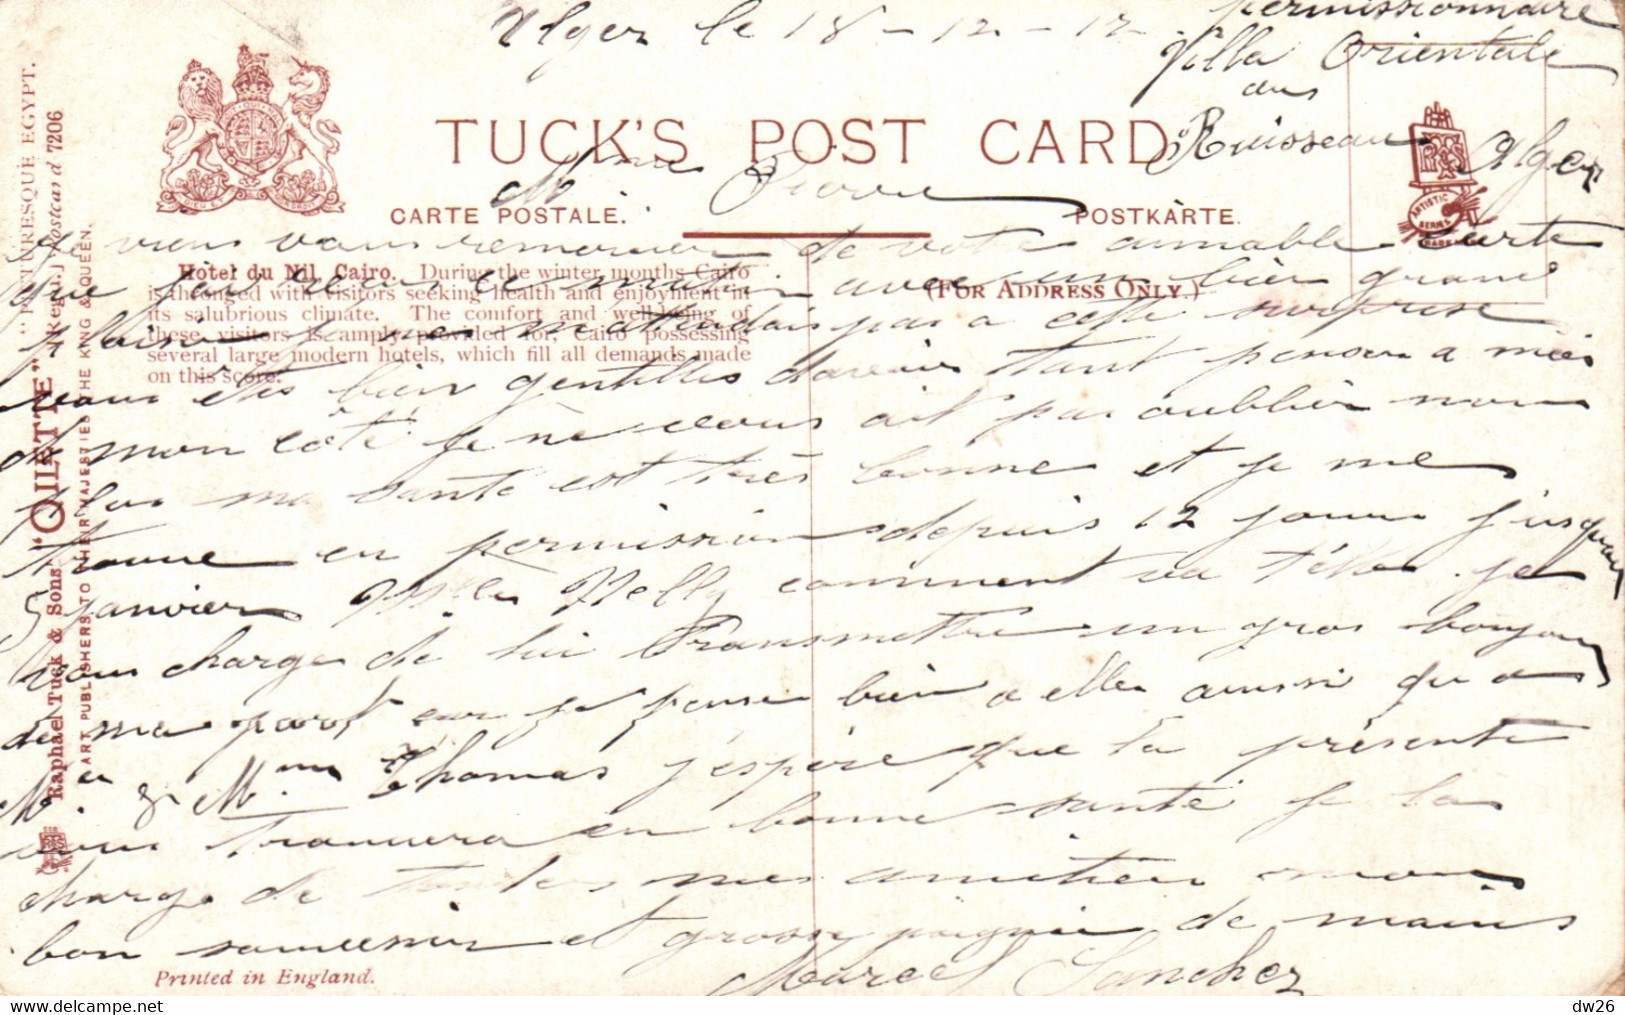 Alger le 18 - 12 - 17
permissionnaire
Villa Orientale
au
Ruisseau Alger
TUCK'S POST CARD
Mme Pierre
CARTE POSTALE. POSTKARTE.
(FOR ADDRESS ONLY.)
Hotel du Nil, Cairo. During the winter months Cairo
is thronged with visitors seeking health and enjoyment in
its salubrious climate. The comfort and well-being of
these visitors is amply provided for, Cairo possessing
several large modern hotels, which fill all demands made
on this score.
Je viens vous remercier de votre aimable carte
que j'ai reçu ce matin avec un bien grand
plaisir je ne m'attendais pas a cette surprise
vous êtes bien gentilles d'avoir tant penser a moi
de mon côté je ne vous ait pas oublier non
plus ma santé est très bonne et je me
trouve en permission depuis 12 jours jusqu'au
5 janvier Mlle Nelly comment va t'elle je
vous charge de lui transmettre un gros bonjour
de ma part car je pense bien a elle aussi qu'a
Mr & Mme Thomas j'espère que la présente
vous trouvera en bonne santé je la
charge de toutes mes amitiés mon
bon souvenir et grosse poignée de mains
Marcel Sanchez
Printed in England.
Raphael Tuck & Sons' "OILETTE" [Regd.] Postcard 7206
"PICTURESQUE EGYPT.
ART PUBLISHERS TO THEIR MAJESTIES THE KING & QUEEN.
ARTISTIC
SERIES
dw26